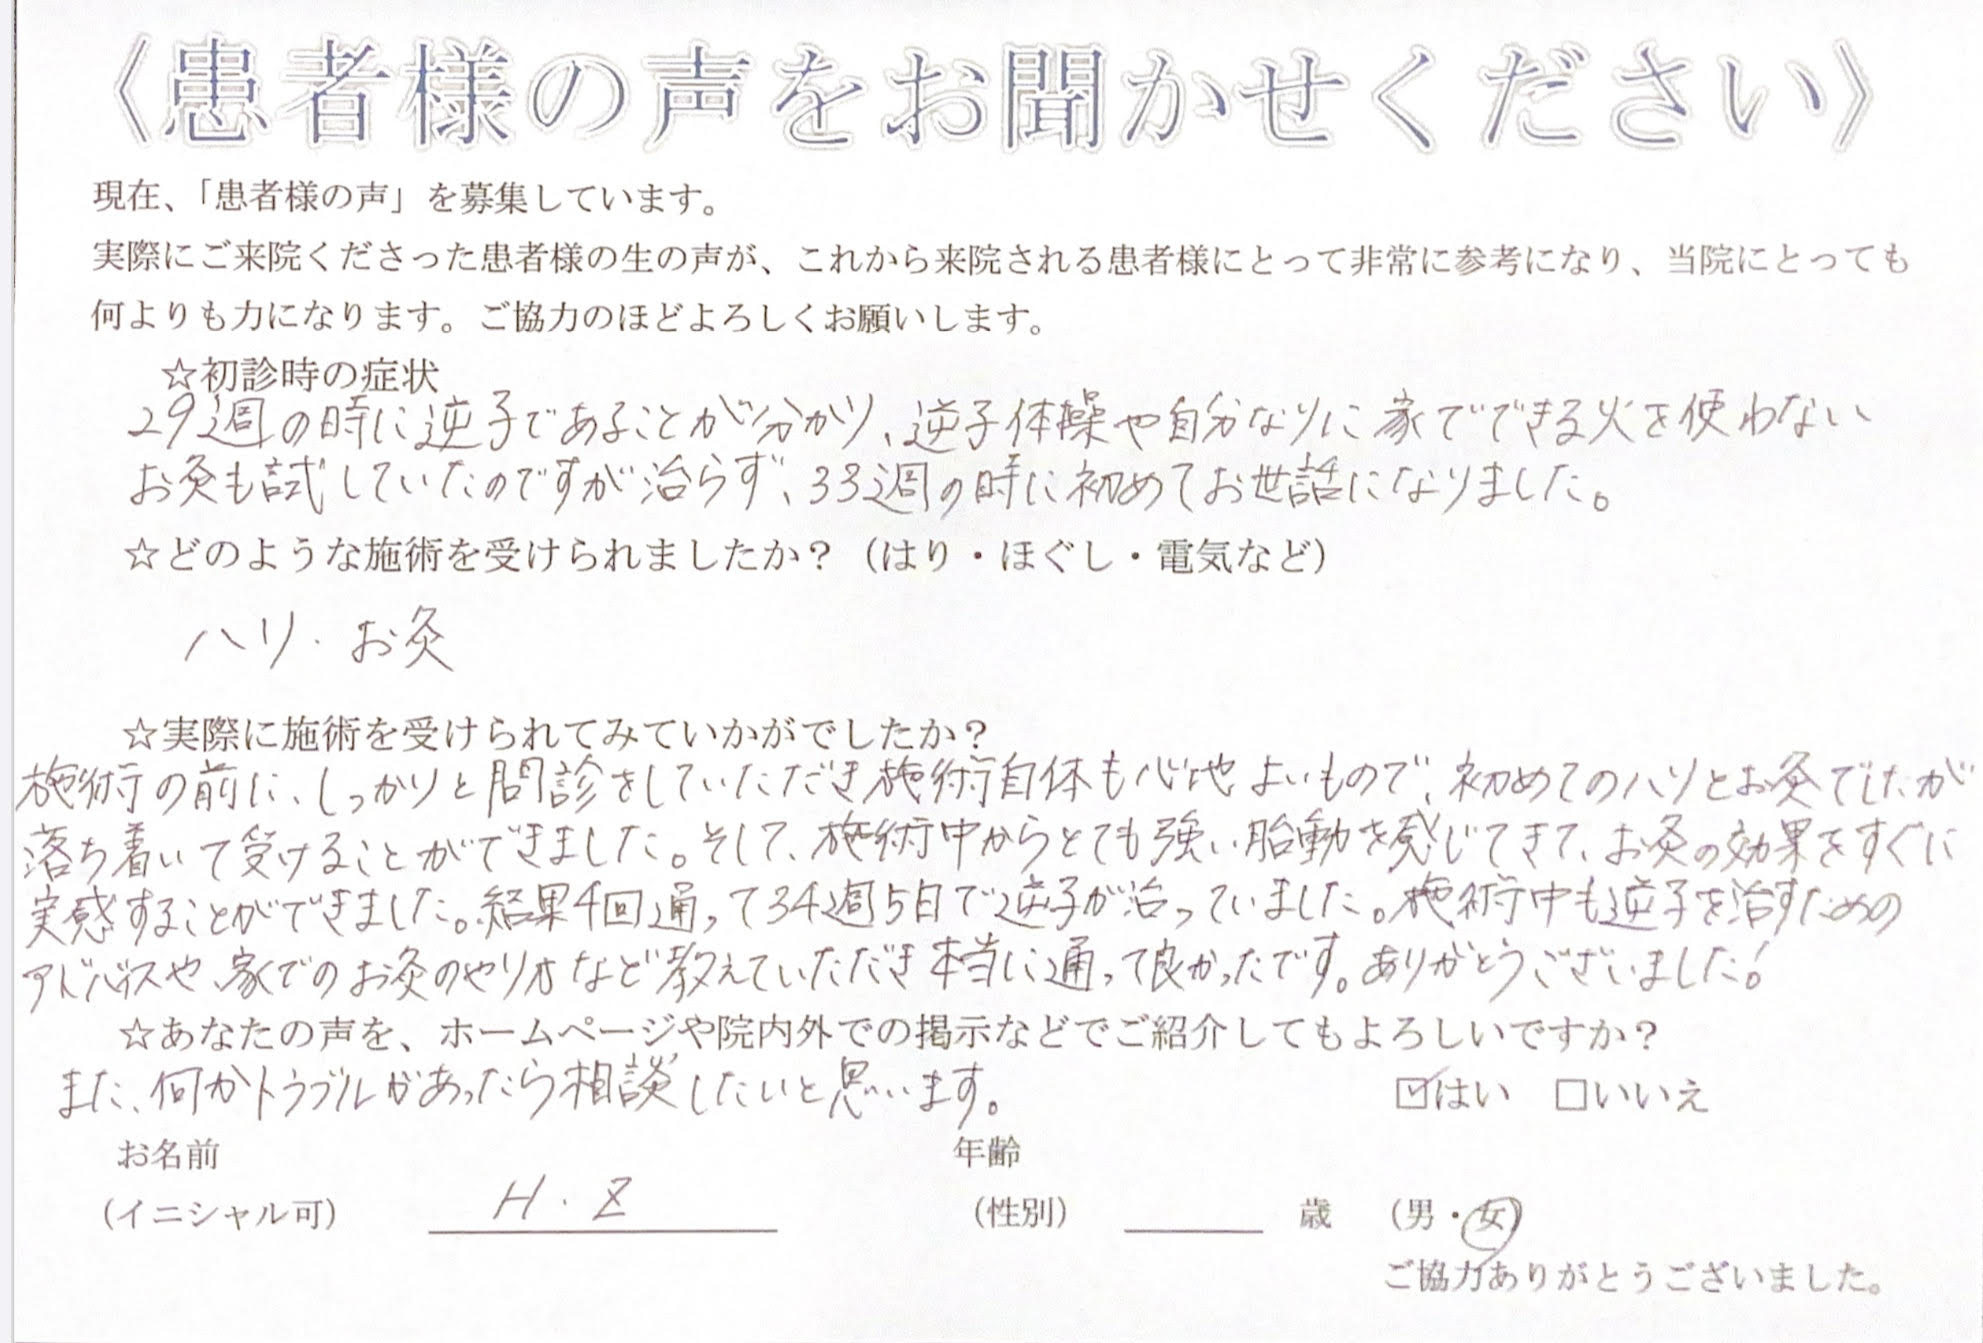 〈患者様の声をお聞かせください〉
現在、「患者様の声」を募集しています。
実際にご来院くださった患者様の生の声が、これから来院される患者様にとって非常に参考になり、当院にとっても
何よりも力になります。ご協力のほどよろしくお願いします。
☆初診時の症状
29週の時に逆子であることが分かり、逆子体操や自分なりに家でできる火を使わない
お灸も試していたのですが治らず、33週の時に初めてお世話になりました。
☆どのような施術を受けられましたか？（はり・ほぐし・電気など）
ハリ・お灸
☆実際に施術を受けられてみていかがでしたか？
施術の前に、しっかりと問診をしていただき施術自体も心地よいもので、初めてのハリとお灸でしたが
落ち着いて受けることができました。そして、施術中からとても強い胎動を感じてきて、お灸の効果をすぐに
実感することができました。結果4回通って34週5日で逆子が治っていました。施術中も逆子を治すための
アドバイスや、家でのお灸のやり方など教えていただき本当に通って良かったです。ありがとうございました！
☆あなたの声を、ホームページや院内外での掲示などでご紹介してもよろしいですか？
また、何かトラブルがあったら相談したいと思います。 ☑はい □いいえ
お名前 年齢
（イニシャル可） H・Z （性別） 歳 （男・女）
ご協力ありがとうございました。